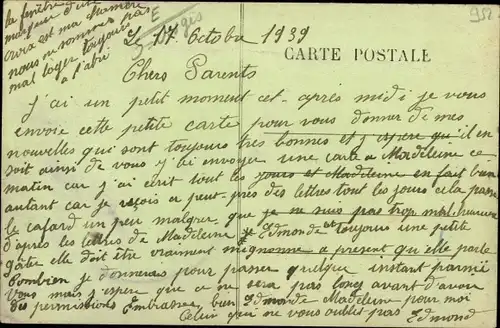 la fenêtre
nous ne sommes pas
mal loger toujours
à l'abri
Le 17 Octobre 1939
952
CARTE POSTALE
Chers Parents
J'ai un petit moment cet après midi je vous
envoie cette petite carte pour vous donner de mes
nouvelles qui sont toujours très bonnes et j'espere qu'il en
soit ainsi de vous j'ai envoyer une carte a Madeleine ce
matin car j'ai écrit tout les jours et Madeleine en fait bien
autant car je reçois a peut-près des lettres tout les jours cela passe
le cafard un peu malgrer que je ne suis pas trop malheureux
d'après les lettres de Madeleine Edmonde est toujours une petite
gâtée elle doit être vraiment mignonne a présent qu'elle parle
Combien je donnerais pour passer quelque instant parmie
Vous mais j'espere que ce ne sera pas long avant d'avoir
des permissions Embrassez bien Edmonde Madeleine pour moi
Celui qui ne vous oublie pas Edmond